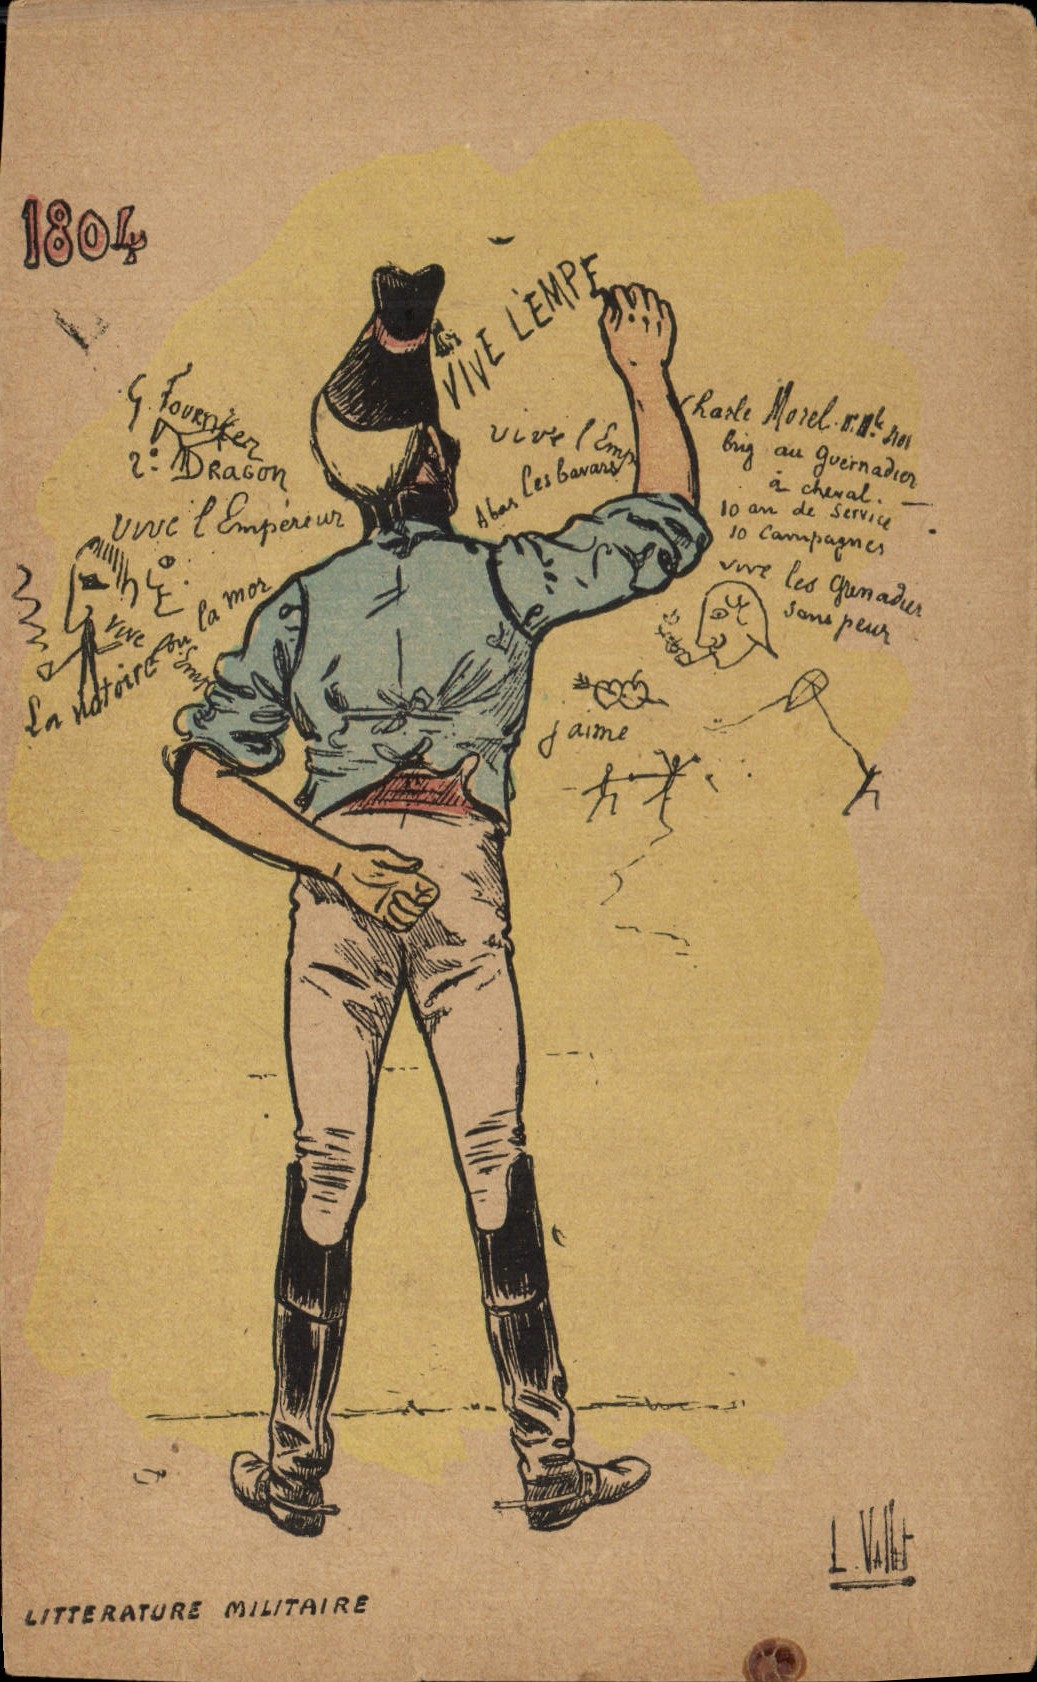 1804
VIVE L'EMPE
G. Fournier
2e DRAGON
Vive l'Empéreur
vive
La victoire ou la mor
vive l'Emp
Abas les bavars
Charle Morel
brig au guernadier
à cheval.
10 an de service
10 campagnes
vive les grenadier
sans peur
j'aime
L. Vallet
LITTERATURE MILITAIRE